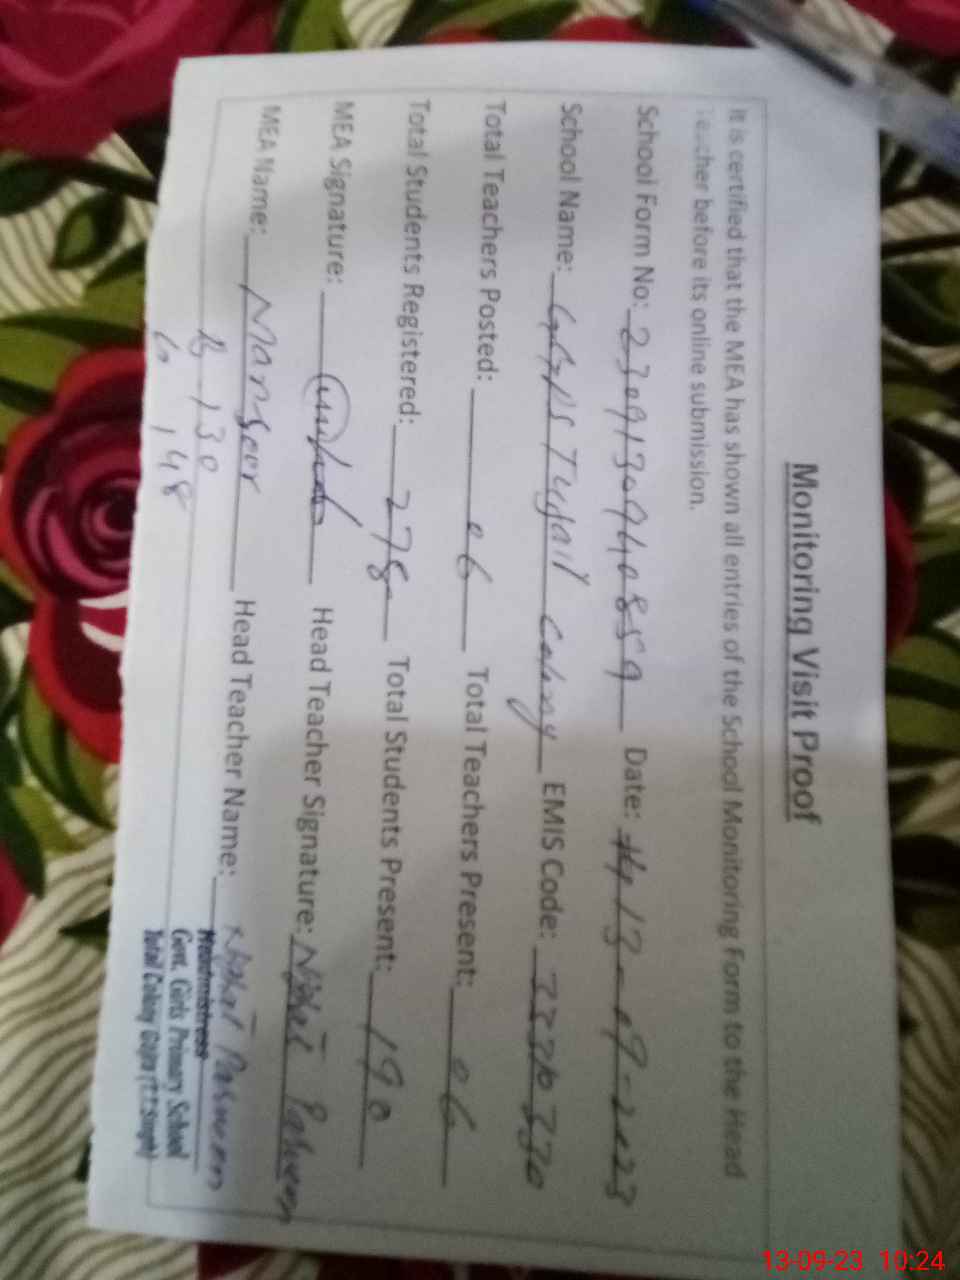 Monitoring Visit Proof
It is certified that the MEA has shown all entries of the School Monitoring Form to the Head
Teacher before its online submission.
School Form No: 2309130940859 Date: 13-09-2023
School Name: Colony EMIS Code:
Total Teachers Posted: 06 Total Teachers Present: 06
Total Students Registered: 278 Total Students Present: 190
MEA Signature: Head Teacher Signature: Nighat Parveen
MEA Name: Manseer Head Teacher Name: Nighat Parveen
B 130
G 148
Headmistress
Govt. Girls Primary School
Colony Gojra (T.T.Singh)
13-09-23 10:24